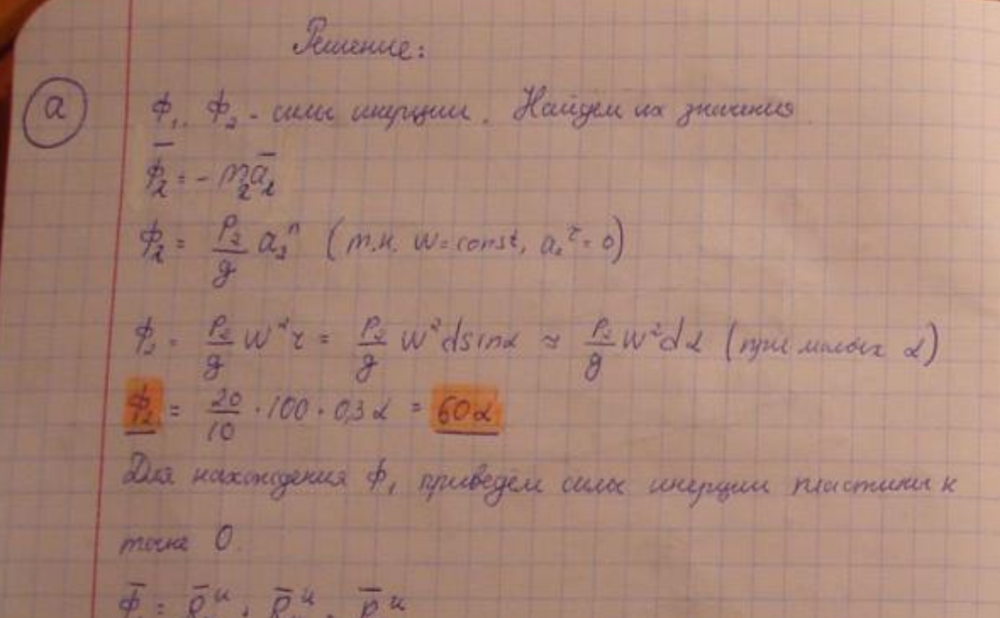 Решение:
а
Ф₁, Ф₂ - силы инерции. Найдем их значения
Ф̅₂ = - m₂a̅₂
Ф₂ = P₂/g a₂ⁿ (т.к. w=const, a₂^τ = 0)
Ф₂ = P₂/g w²r = P₂/g w²dsinα ≈ P₂/g w²dα (при малых α)
Ф₂ = 20/10 · 100 · 0,3α = 60α
Для нахождения Ф₁ приведём силы инерции пластины к
точке О.